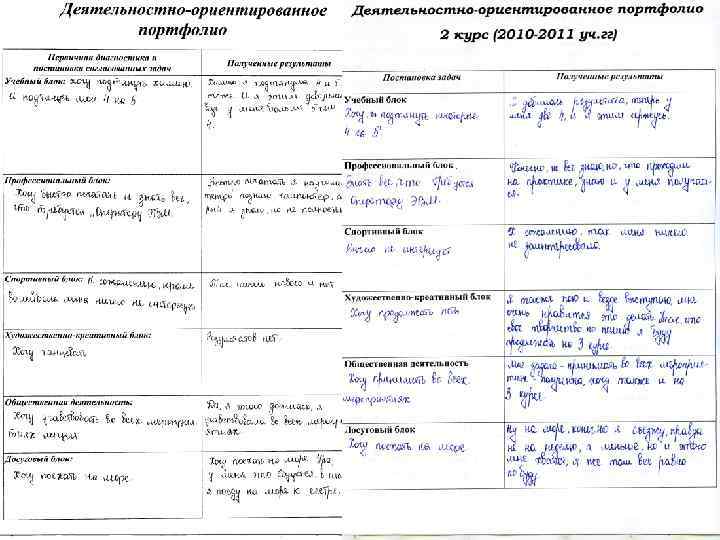 Деятельностно-ориентированное
портфолио
Первичная диагностика и
постановка согласованных задач
Полученные результаты
Учебный блок: Хочу подтянуть химию
и подтянуть мои 4 на 5
Химию я подтянула 4 и 5
тоже. И я этим
4.
Профессиональный блок:
Хочу быстро печатать и знать все,
что требуется "Оператору ЭВМ.
Быстро печатать я научи
теперь
рый я знаю, но не полность
Спортивный блок: К сожалению, кроме
волейбола меня ничего не
нового и нет
Художественно-креативный блок:
Хочу танцевать
Результатов нет.
Общественная деятельность:
Хочу участвовать во всех
Да, я этого добилась, я
участвовала во всех
ятиях.
Досуговый блок:
Хочу поехать на море.
Хочу поехать на море. Ура
у меня это
я поеду на море к сестре.
Деятельностно-ориентированное портфолио
2 курс (2010-2011 уч.гг)
Постановка задач
Полученные результаты
Учебный блок
Хочу подтянуть некоторые
4 на 5
Я добилась результата, теперь у
меня две 4, и я этим горжусь.
Профессиональный блок
Знать все, что требуется
оператору ЭВМ.
Конечно, не все знаю, но, что проходили
на практике, знаю и у меня получает-
ся.
Спортивный блок
Ничего не интересует
К сожалению, так меня ничего
не заинтересовало.
Художественно-креативный блок
Хочу продолжать петь
Я также пою и везде выступаю, мне
очень нравится это делать. Так, что
свое творчество по пению я буду
продолжать на 3 курсе.
Общественная деятельность
Хочу принимать во всех
мероприятиях
Моя задача - принимать во всех мероприя-
тиях - получена, хочу также и на
3 курсе.
Досуговый блок
Хочу поехать на море
Ну на море, конечно я съезжу, правда
не на неделю, а меньше, но и этого
мне хватит, я же там все равно
побуду